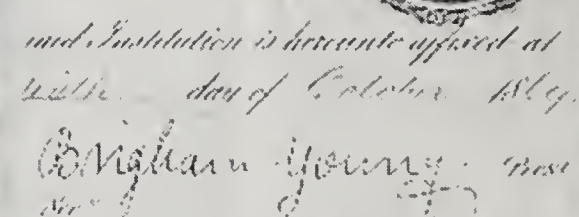 and Institution is hereunto affixed at
day of October 1869.
Brigham Young.